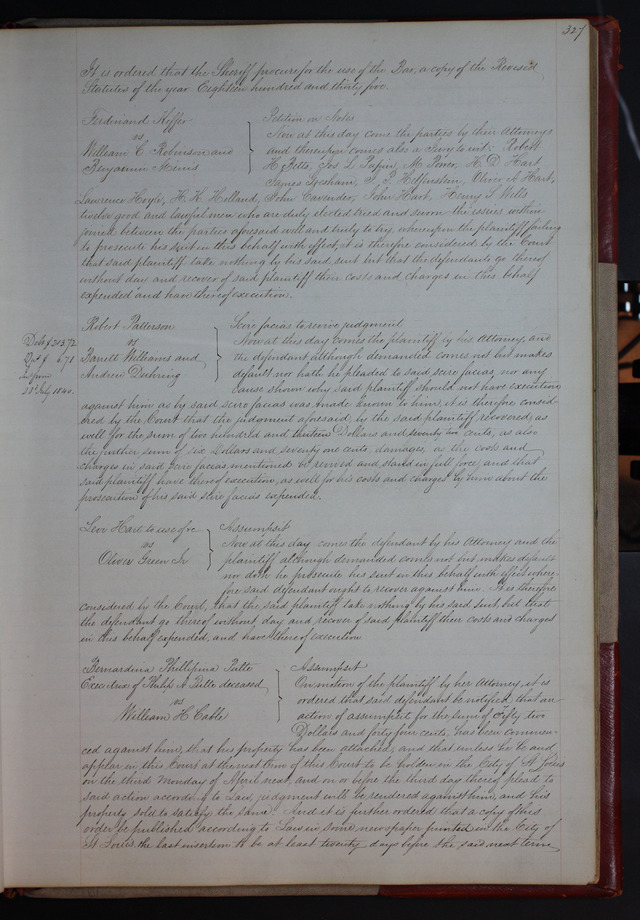 327
It is ordered that the Sheriff procure for the use of the Bar, a copy of the Revised
Statutes of the year Eighteen hundred and thirty five.
Ferdinand Keffer
vs
William C Robinson and
Benjamin
Petition on Notes
Now at this day come the parties by their Attorneys
and thereupon comes also a Jury to wit: Robert
H Betts, Jos L Papin, M Power, H. D. Hart
James Gresham, T. P. Helfinstein, Oliver A Hart,
Lawrence Hoyle, H. H. Holland, John Cavender, John Hart, Henry S Wells
twelve good and lawful men who are duly elected tried and sworn the issues within
joined between the parties aforesaid well and truly to try, whereupon the plaintiff failing
to prosecute his suit in this behalf with effect, it is therefore considered by the Court
that said plaintiff take nothing by his said suit but that the defendants go thereof
without day and recover of said plaintiff their costs and charges in this behalf
expended and have thereof execution.
Debt $213.72
Dam $ 6.71
21st July 1840.
Robert Patterson
vs
Barrell Williams and
Andrew Duhring
Scire facias to revive judgment
Now at this day comes the plaintiff by his Attorney, and
the defendant although demanded comes not but makes
default nor hath he pleaded to said scire facias, nor any
cause shown why said plaintiff should not have execution
against him as by said scire facias was made known to him, it is therefore consid-
ered by the Court that the judgment aforesaid, by the said plaintiff recovered, as
well for the sum of two hundred and thirteen Dollars and seventy two cents, as also
the further sum of six Dollars and seventy one cents damages, as the costs and
charges in said scire facias mentioned be revived and stand in full force, and that
said plaintiff have thereof execution, as well for his costs and charges by him about the
prosecution of his said scire facias expended.
Levi Hart to use of
vs
Oliver Green Jr
Assumpsit
Now at this day comes the defendant by his Attorney and the
plaintiff although demanded comes not but makes default
nor doth he prosecute his suit in this behalf with effect where-
fore said defendant ought to recover against him. It is therefore
considered by the Court, that the said plaintiff take nothing by his said suit, but that
the defendant go thereof without day and recover of said plaintiff their costs and charges
in this behalf expended, and have thereof execution
Bernardina Phillipina Tulte
Executrix of Philip A Tulte deceased
vs
William H Cable
Assumpsit
On motion of the plaintiff by her Attorney, it is
ordered that said defendant be notified that an
action of assumpsit for the sum of fifty two
Dollars and forty four cents, has been commen-
ced against him, that his property has been attached, and that unless he be and
appear in this Court at the next term of this Court to be holden in the City of St Louis
on the third Monday of April next, and on or before the third day thereof plead to
said action according to Law, judgment will be rendered against him, and his
property sold to satisfy the same. And it is further ordered that a copy of this
order be published according to Law in some newspaper printed in the City of
St Louis the last insertion to be at least twenty days before the said next term